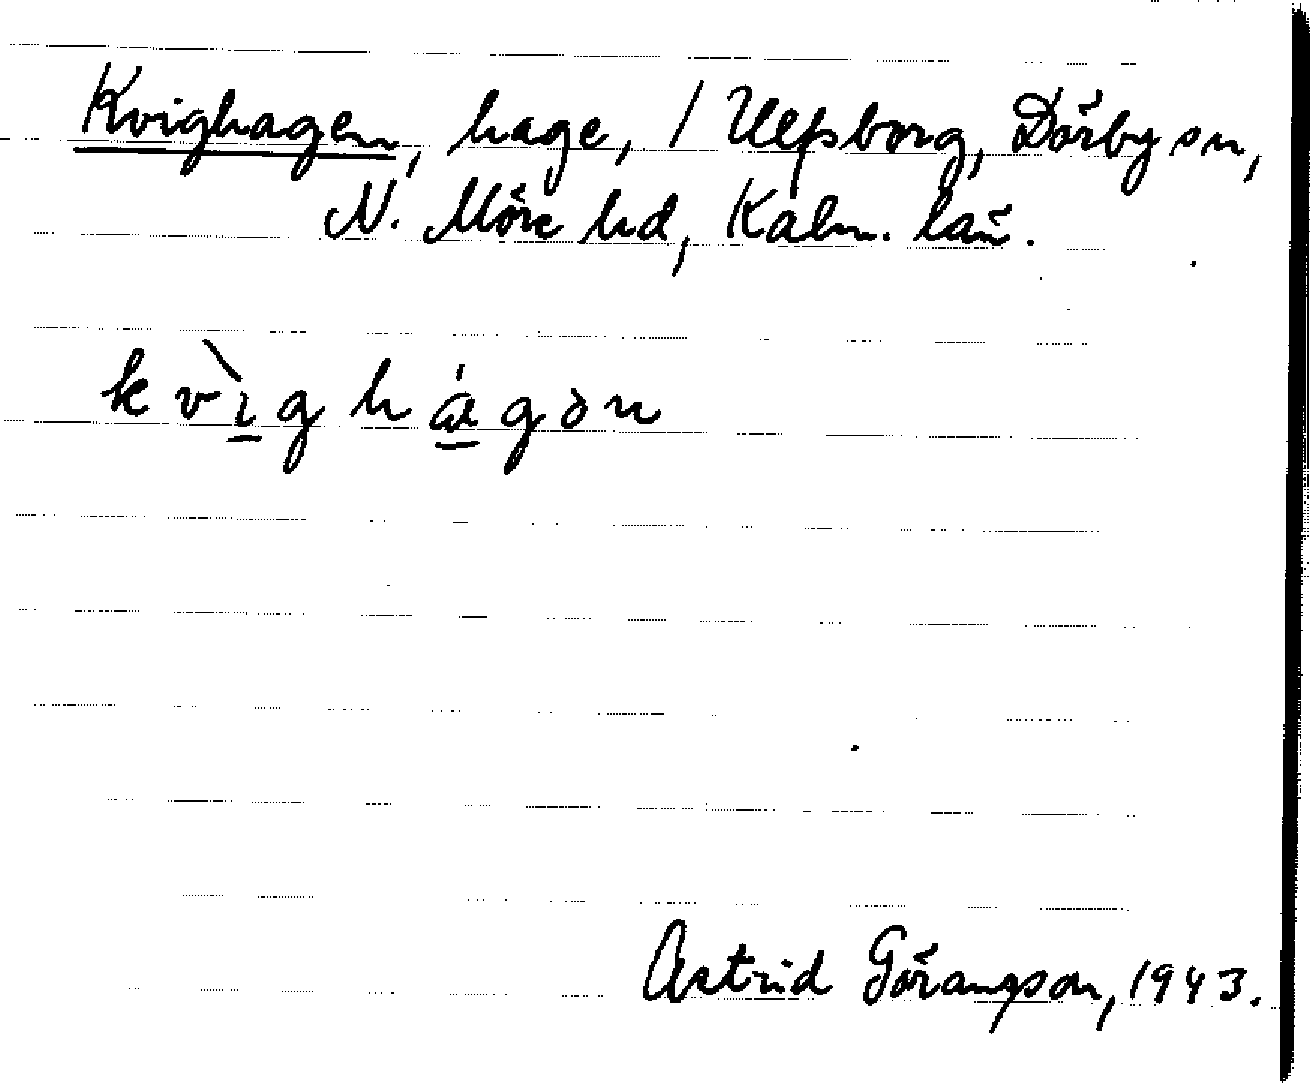 Kvighagen, hage, / Ulfsborg, Dörby sn,
N. Möre hd, Kalm. län.
kvìghágən
Astrid Göransson, 1943.